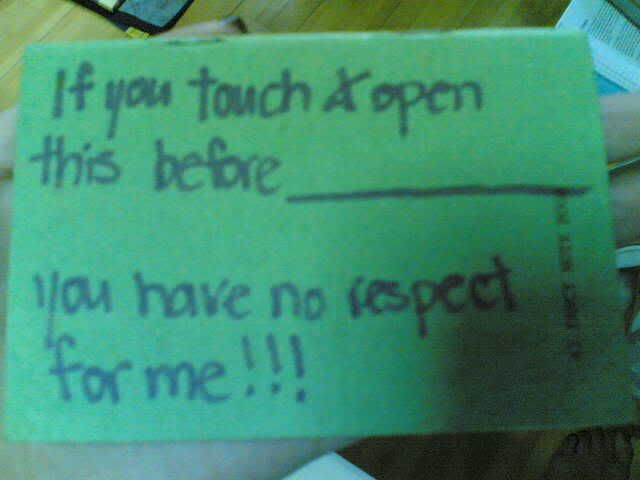 If you touch & open
this before ____________
you have no respect
for me!!!